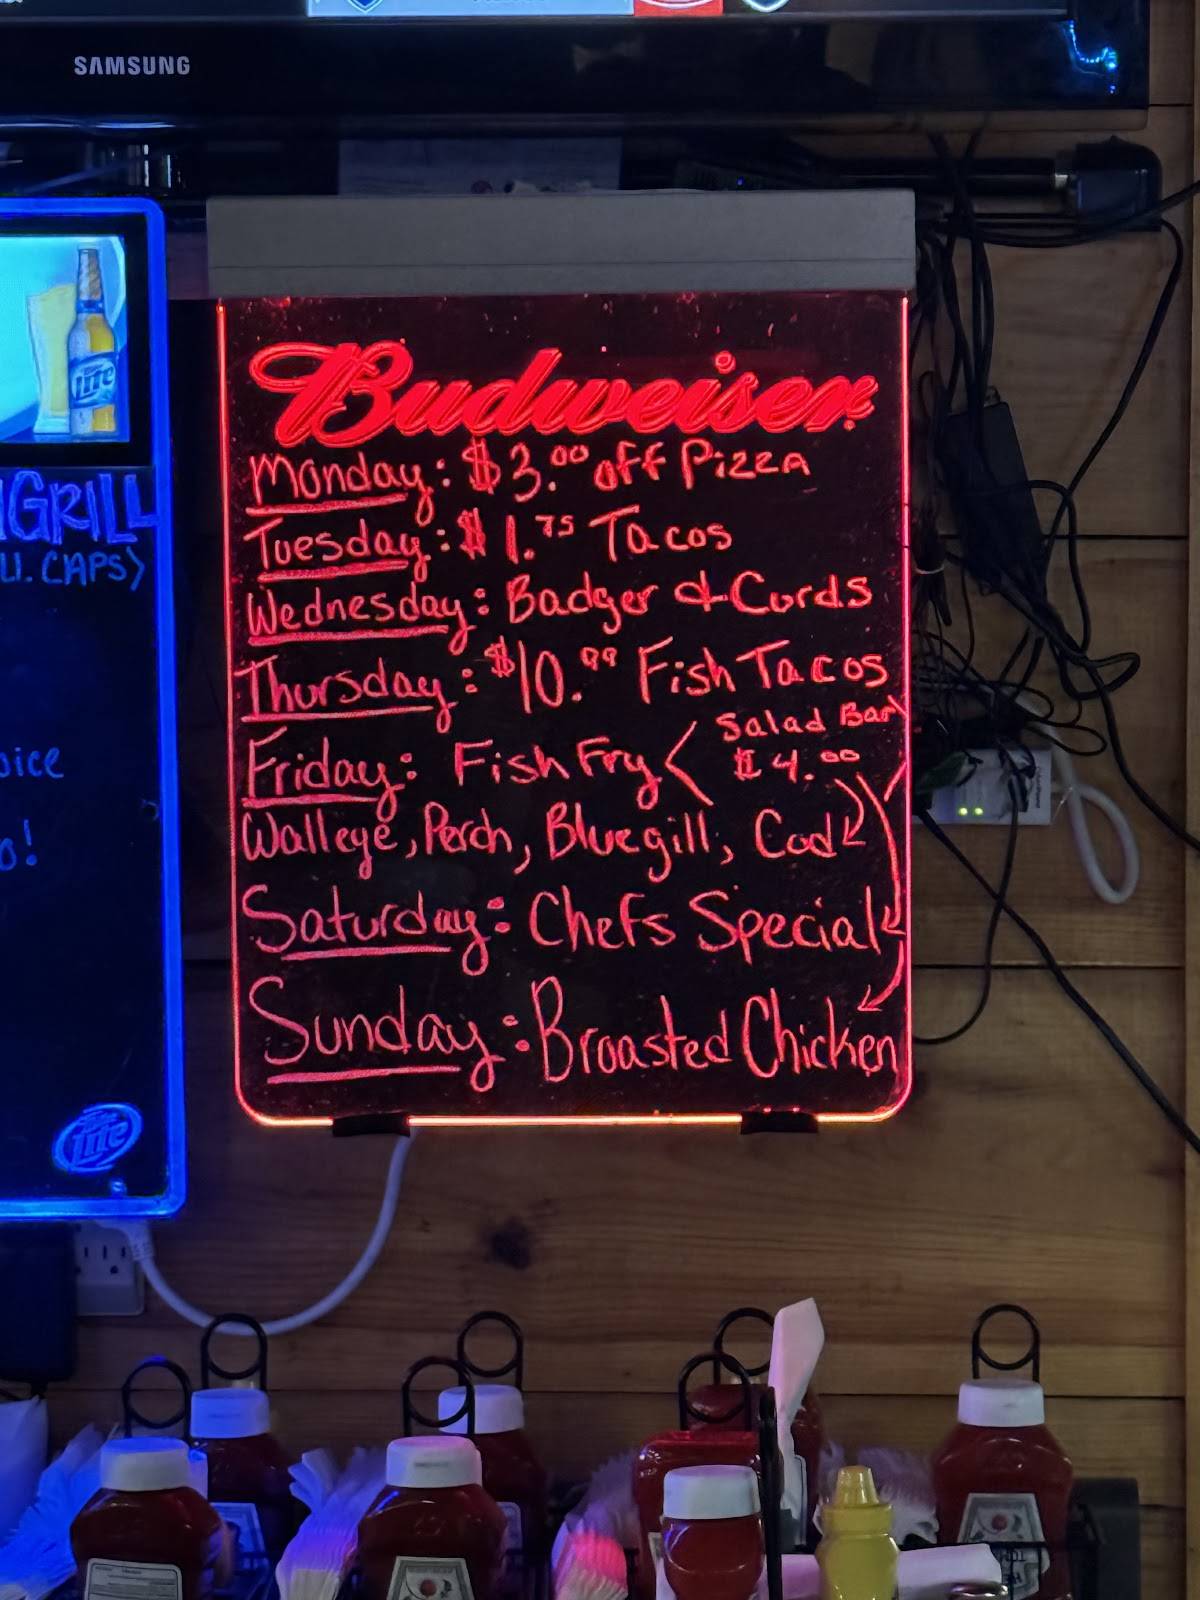 SAMSUNG
Lite
GRILL
CAPS)
oice
o!
Lite
Budweiser
Monday: $3.00 off Pizza
Tuesday: $1.75 Tacos
Wednesday: Badger & Curds
Thursday: $10.99 Fish Tacos
Friday: Fish Fry < Salad Bar
$4.00
Walleye, Perch, Bluegill, Cod
Saturday: Chefs Special
Sunday: Broasted Chicken